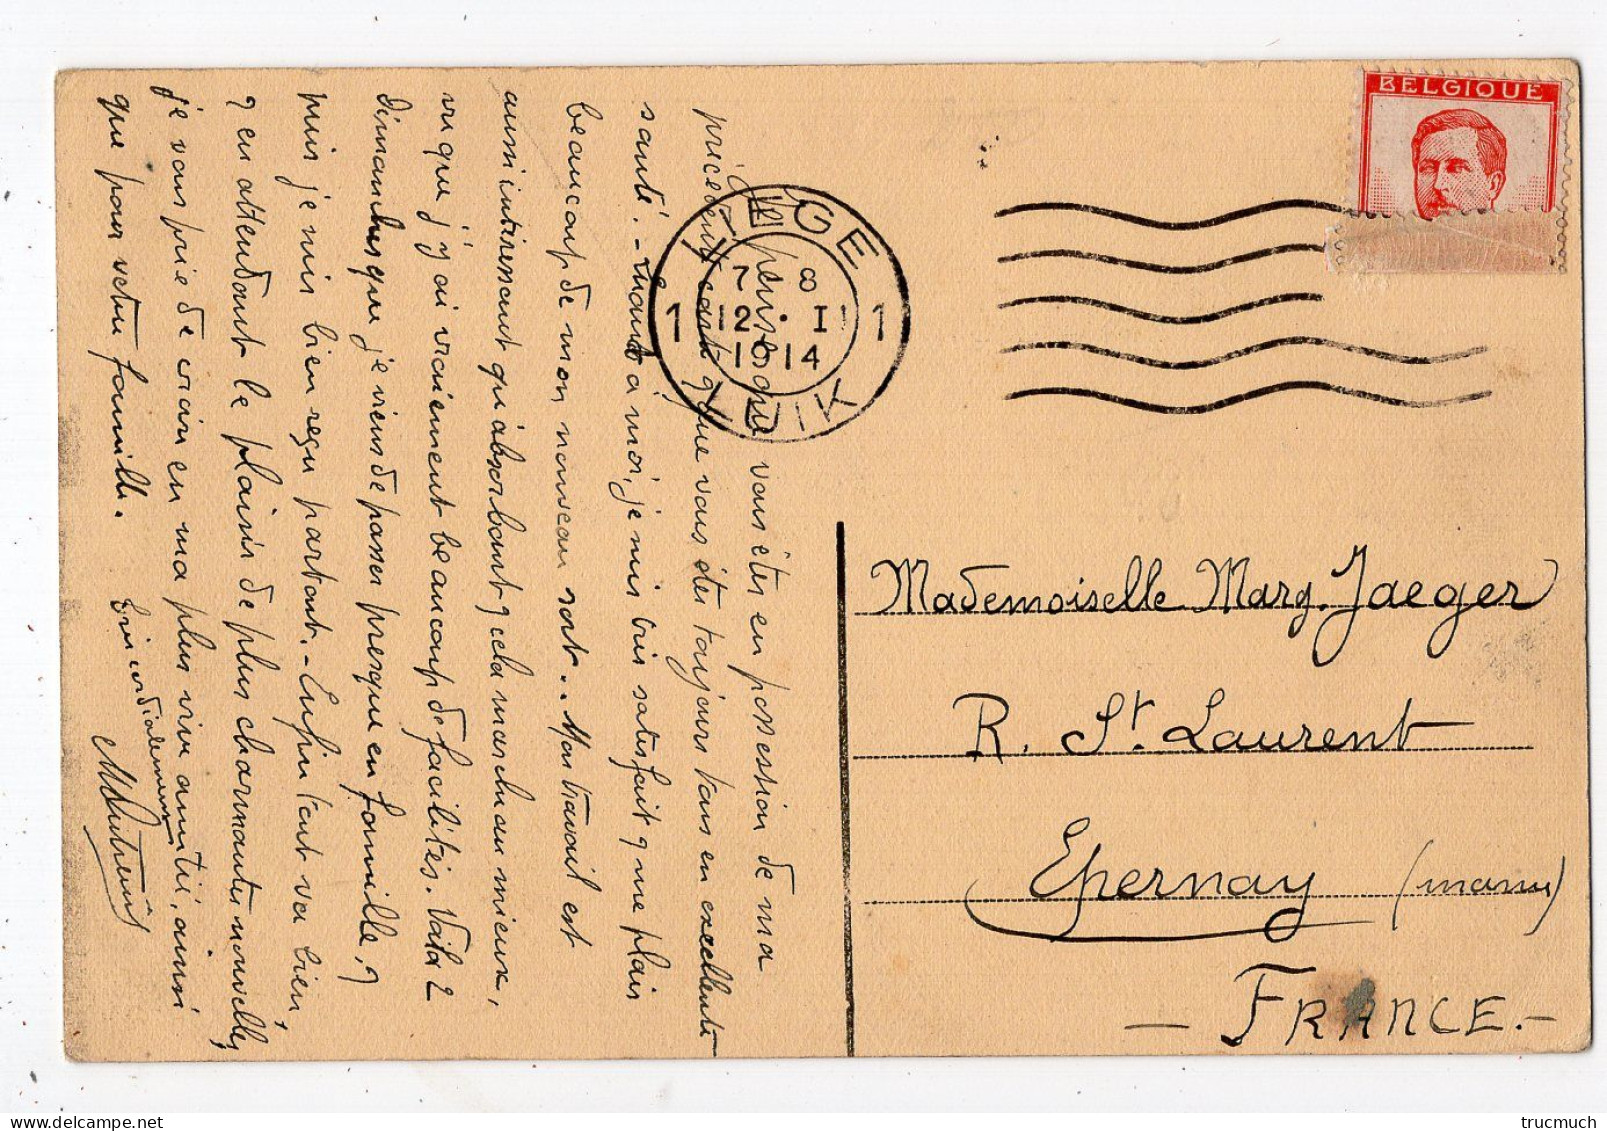 BELGIQUE
LIEGE
7 8
1 12 · I 1
19 14
LUIK
Je pense que vous êtes en possession de ma
précédente carte & que vous êtes toujours tous en excellente
santé. - Quant à moi, je suis très satisfait & me plais
beaucoup de mon nouveau sort.. Mon travail est
aussi intéressant qu'absorbant & cela marche au mieux,
vu que j'y ai vraiment beaucoup de facilités. Voilà 2
dimanches que je viens de passer presque en famille, &
puis je suis bien reçu partout. - Enfin tout va bien,
& en attendant le plaisir de plus charmantes nouvelles,
je vous prie de croire en ma plus vive amitié, ainsi
que pour votre famille.
Très cordialement
Mademoiselle Marg. Jaeger
R. St. Laurent
Epernay (marne)
— FRANCE. —
trucmuch